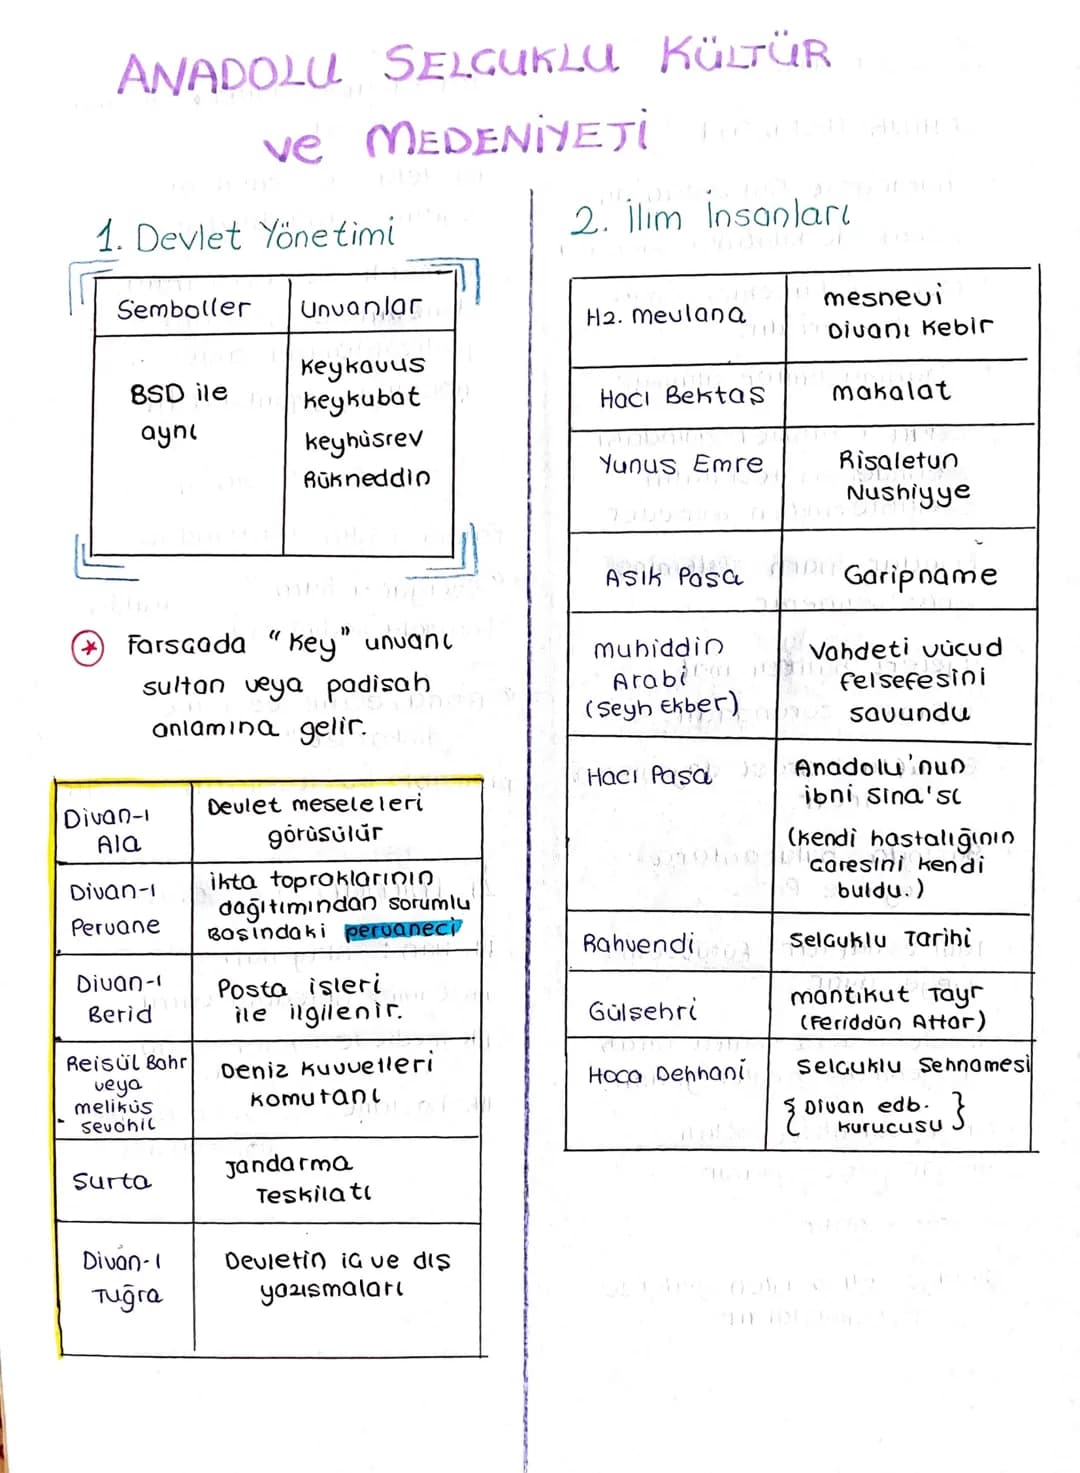 ANADOLU SELCUKLU KÜLTÜR
ve MEDENİYETİ
1. Devlet Yönetimi
Semboller
Unvanlar
BSD ile
aynı
Keykavus
keykubat
keyhüsrev
Rükneddin
* Farscada "key" unvanı
sultan veya padisah
anlamına gelir.
Divan-ı
Ala
Devlet meseleleri
görüsülür
Divan-ı
Pervane
ikta topraklarının
dağıtımından sorumlu
Basındaki pervaneci
Divan-ı
Berid
Posta işleri
ile ilgilenir.
Reisül Bahr
veya
meliküs
sevahil
Deniz kuvvetleri
komutanı
Surta
Jandarma
Teskilatı
Divan-ı
Tuğra
Devletin ic ve dış
yazısmaları
2. İlim İnsanları
Hz. mevlana
mesnevi
Divanı Kebir
Hacı Bektas
makalat
Yunus Emre
Risaletun
Nushiyye
Asık Pasa
Garipname
muhiddin
Arabi
(Seyh Ekber)
Vahdeti vücud
felsefesini
savundu
Hacı Pasa
Anadolu'nun
ibni Sina'sı
(kendi hastalığının
caresini kendi
buldu.)
Rahvendi
Selcuklu Tarihi
Gülsehri
mantıkut Tayr
(Feriddün Attar)
Hoca Dehhani
Selcuklu Sehnamesi
{ Divan edb.
kurucusu }